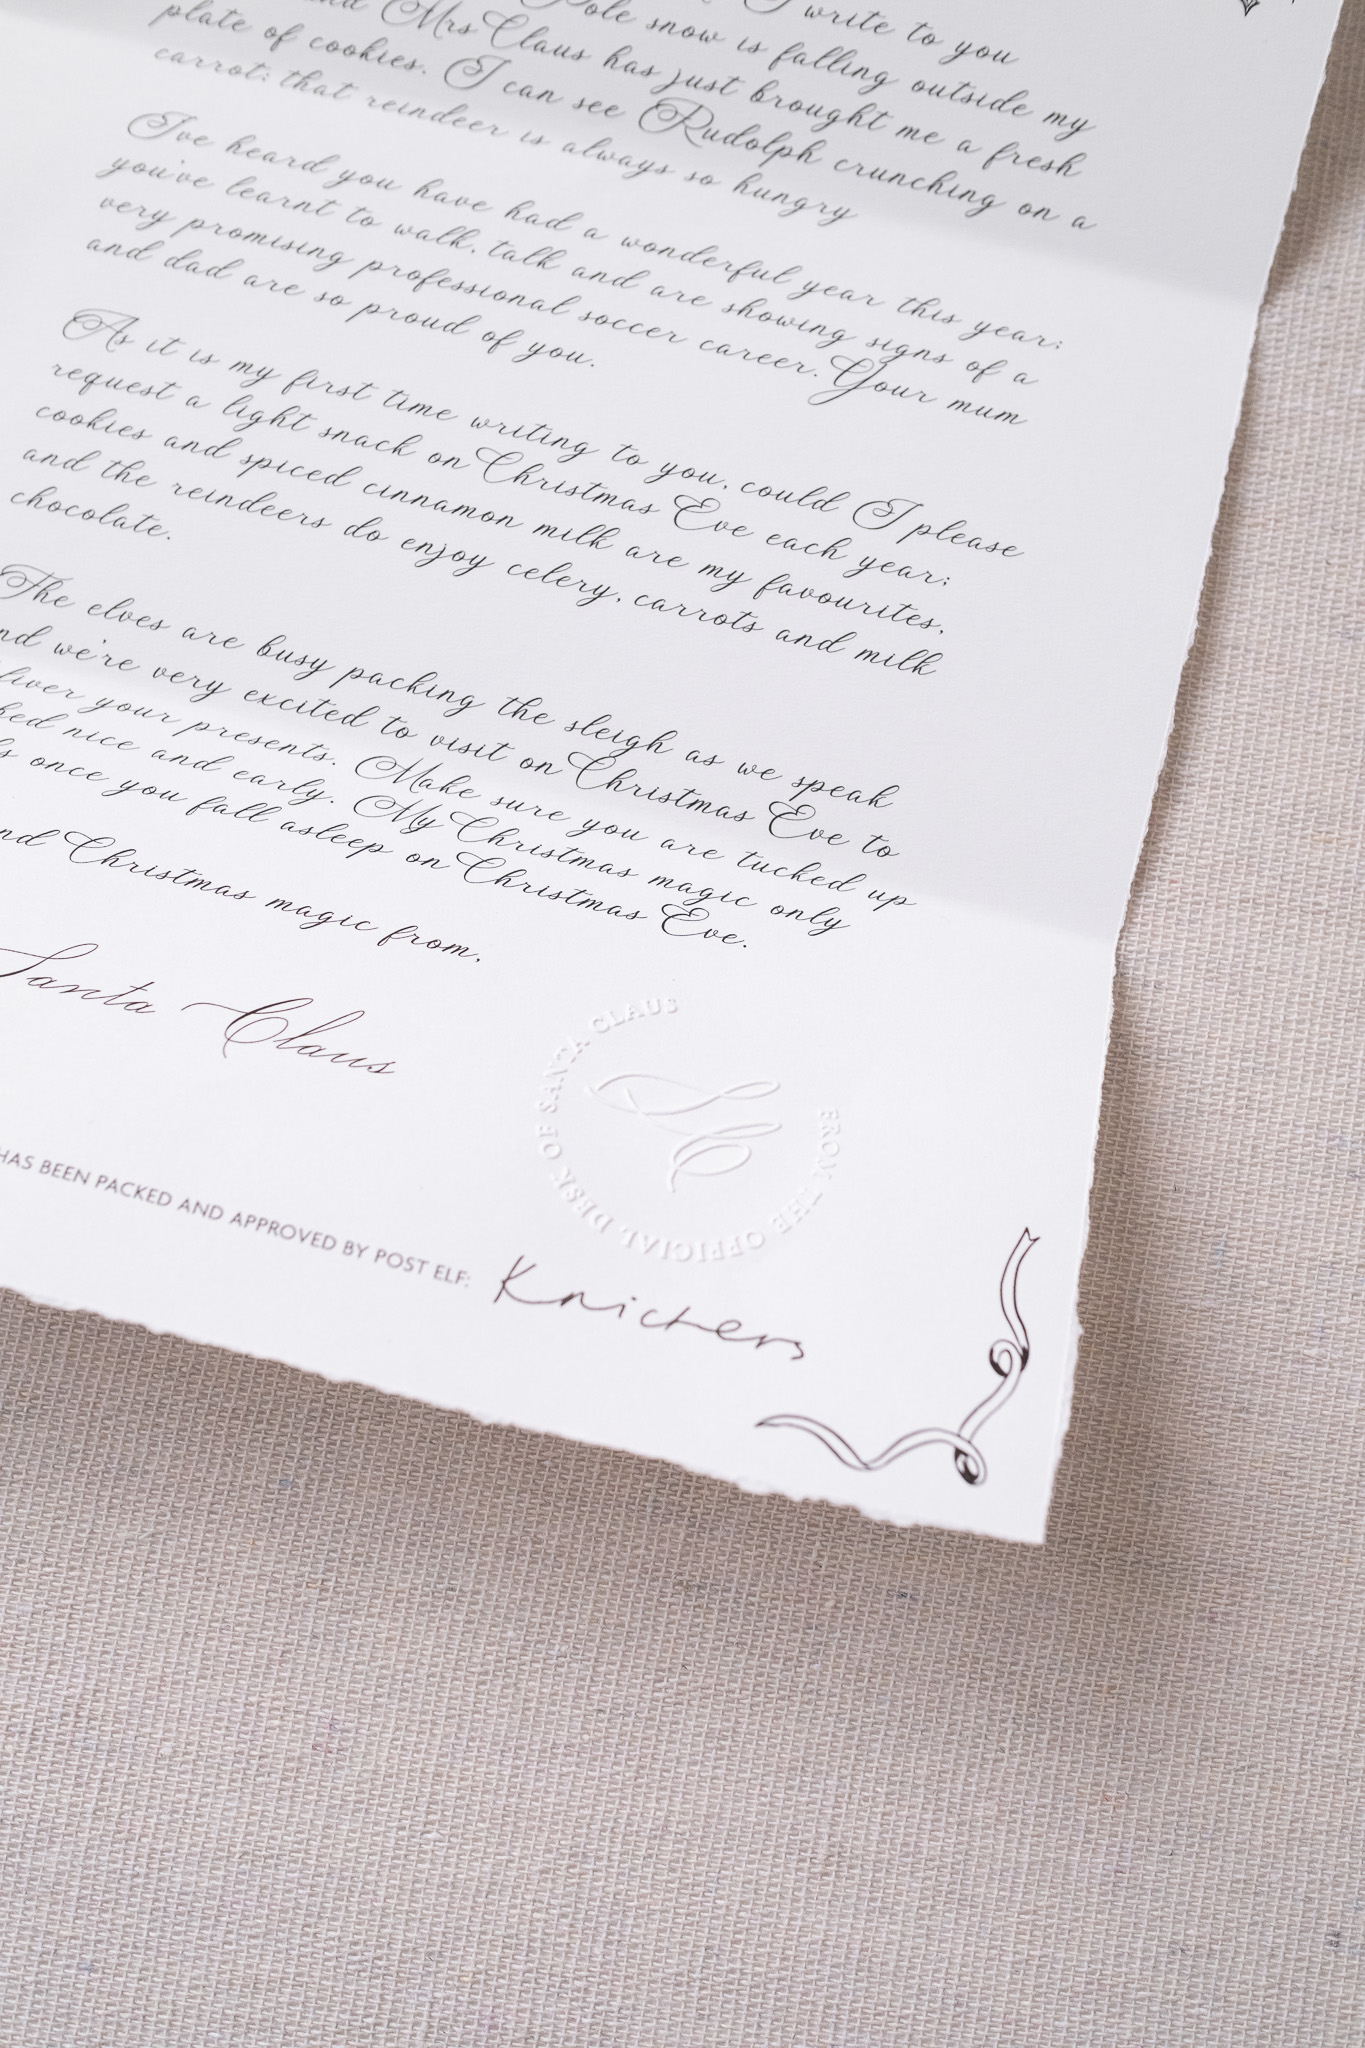 I write to you
Pole snow is falling outside my
Mrs Claus has just brought me a fresh
plate of cookies. I can see Rudolph crunching on a
carrot; that reindeer is always so hungry
I've heard you have had a wonderful year this year;
you've learnt to walk, talk and are showing signs of a
very promising professional soccer career. Your mum
and dad are so proud of you.
As it is my first time writing to you, could I please
request a light snack on Christmas Eve each year;
cookies and spiced cinnamon milk are my favourites,
and the reindeers do enjoy celery, carrots and milk
chocolate.
The elves are busy packing the sleigh as we speak
we're very excited to visit on Christmas Eve to
your presents. Make sure you are tucked up
nice and early. My Christmas magic only
once you fall asleep on Christmas Eve.
Christmas magic from,
Santa Claus
FROM THE OFFICIAL DESK OF SANTA CLAUS
SC
HAS BEEN PACKED AND APPROVED BY POST ELF: Knickers